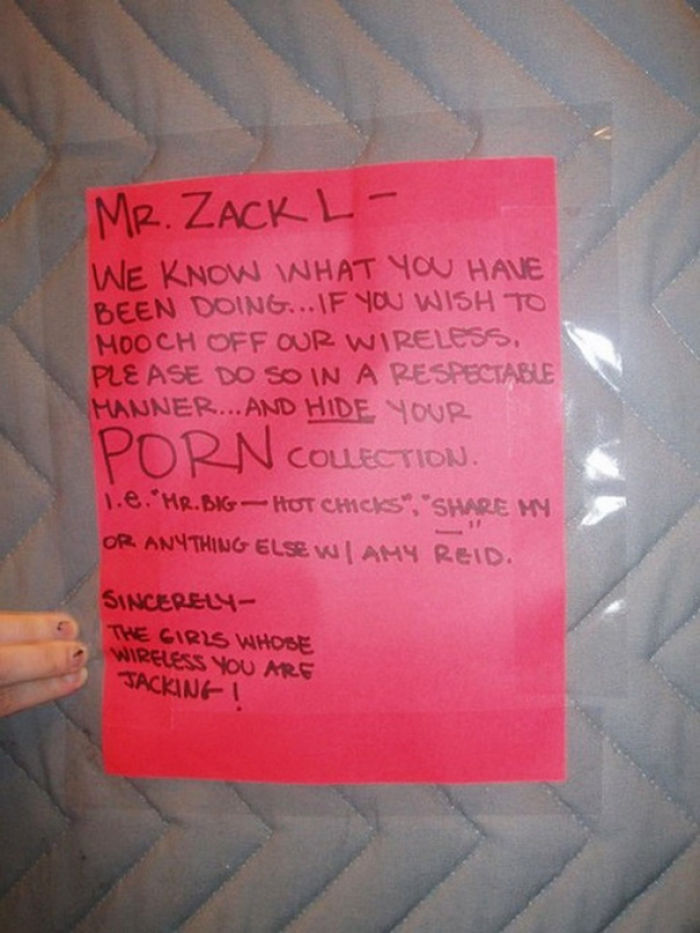 MR. ZACK L –
WE KNOW WHAT YOU HAVE
BEEN DOING...IF YOU WISH TO
MOOCH OFF OUR WIRELESS,
PLEASE DO SO IN A RESPECTABLE
MANNER...AND HIDE YOUR
PORN COLLECTION.
i.e. "MR. BIG – HOT CHICKS", "SHARE MY
—"
OR ANYTHING ELSE W/ AMY REID.
SINCERELY –
THE GIRLS WHOSE
WIRELESS YOU ARE
JACKING!